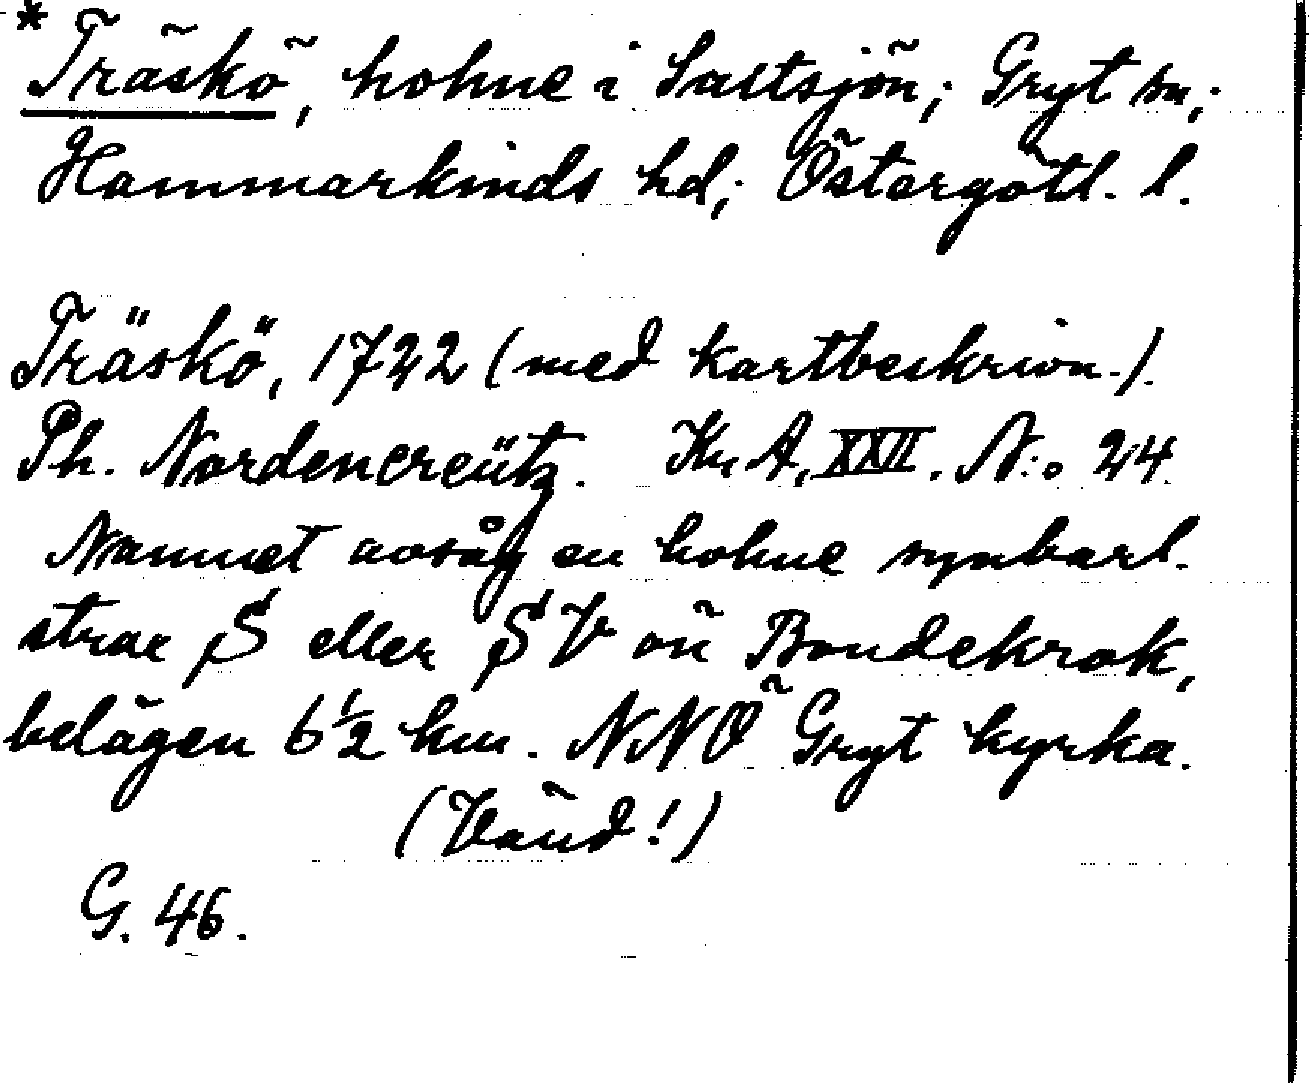 *Träskö, holme i Saltsjön; Gryt sn;
Hammarkinds hd; Östergötl. l.
Träskö, 1722 (med kartbeskrivn.).
Ph. Nordencreütz. Kr. A, XXII. N:o 24
Namnet avsåg en holme synbarl.
strax S eller SV om Bondekrok,
belägen 6 1/2 km. NNÖ Gryt kyrka.
(Vänd!)
G. 46.